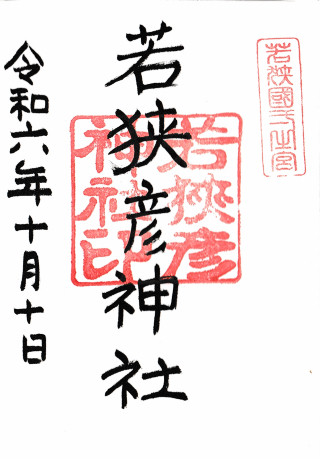 若狭國一之宮
若狭彦神社
若狭彦
神社印
令和六年十月十日